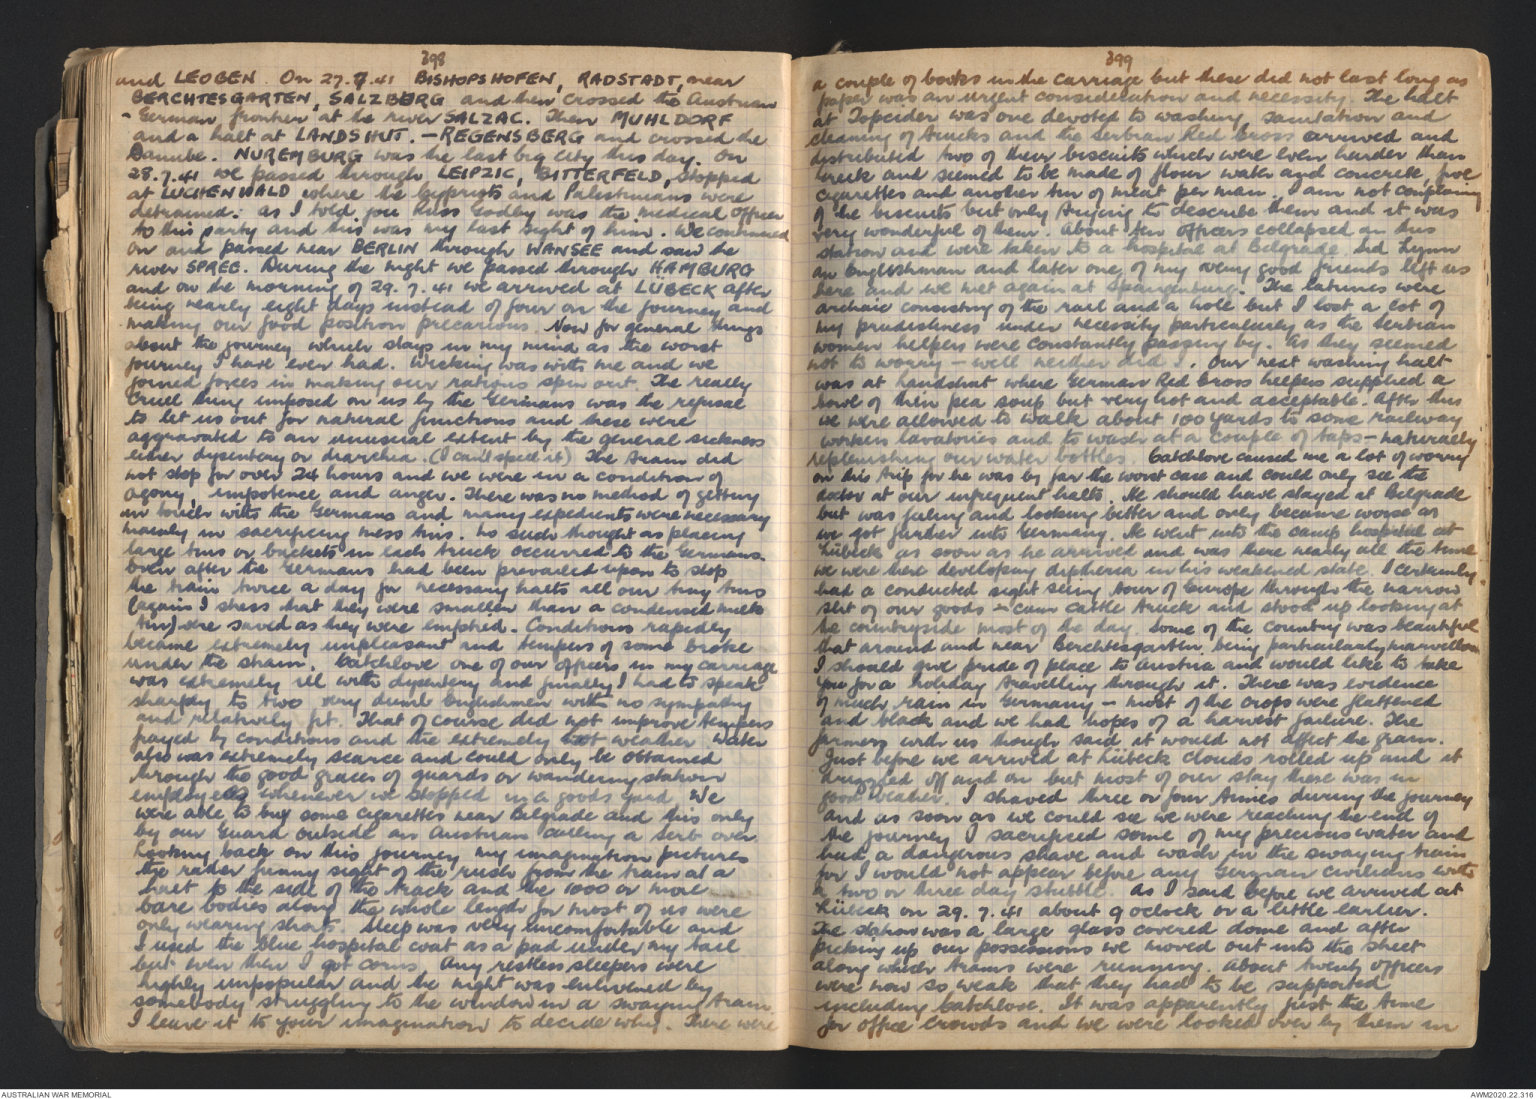 398
and LEOBEN. On 27.7.41 BISHOPSHOFEN, RADSTADT, near
BERCHTESGARTEN, SALZBURG and then crossed the Austrian
- German frontier at the river SALZAC. Then MUHLDORF
and a halt at LANDSHUT. - REGENSBERG and crossed the
Danube. NUREMBURG was the last big city this day. On
28.7.41 we passed through LEIPZIC, BITTERFELD, stopped
at LUCHENWALD where the Cypriots and Palestinians were
detrained. As I told you Russ Godby was the medical officer
to this party and this was my last sight of him. We continued
on and passed near BERLIN through WANSEE and saw the
river SPREE. During the night we passed through HAMBURG
and on the morning of 29.7.41 we arrived at LUBECK after
being nearly eight days instead of four on the journey and
making our food position precarious. Now for general things
about the journey which stays in my mind as the worst
journey I have ever had. Wicking was with me and we
joined forces in making our rations spin out. The really
cruel thing imposed on us by the Germans was the refusal
to let us out for natural functions and these were
aggravated to an unusual extent by the general sickness
either dysentery or diarrhea. (I can't spell it) The train did
not stop for over 24 hours and we were in a condition of
agony, impotence and anger. There was no method of getting
in touch with the Germans and many expedients were necessary
mainly in sacrificing mess tins. No such thought as placing
large tins or buckets in each truck occurred to the Germans.
Even after the Germans had been prevailed upon to stop
the train twice a day for necessary halts all our tiny tins
(again I stress that they were smaller than a condensed milk
tin) were saved as they were emptied. Conditions rapidly
became extremely unpleasant and tempers of some broke
under the strain. Catchlove one of our officers in my carriage
was extremely ill with dysentery and finally I had to speak
sharply to two very dumb Englishmen with no sympathy
and relatively fit. That of course did not improve tempers
frayed by conditions and the extremely hot weather. Water
also was extremely scarce and could only be obtained
through the good graces of guards or wandering station
employees whenever we stopped in a goods yard. We
were able to buy some cigarettes near Belgrade and this only
by our Guard outside an Austrian calling a Serb over.
Looking back on this journey my imagination pictures
the rather funny sight of the rush from the train at a
halt to the side of the track and the 1000 or more
bare bodies along the whole length for most of us were
only wearing shorts. Sleep was very uncomfortable and
I used the blue hospital coat as a pad under my tail
but even then I got corns. Any restless sleepers were
highly unpopular and the night was enlivened by
somebody struggling to the window in a swaying train.
I leave it to your imagination to decide why. There were
399
a couple of books in the carriage but these did not last long as
paper was an urgent consideration and necessity. The halt
at Topcider was one devoted to washing, sanitation and
cleaning of trucks and the Serbian Red Cross arrived and
distributed two of their biscuits which were even harder than
and seemed to be made of flour water and concrete, five
cigarettes and another tin of meat per man. I am not complaining
of the biscuits but only trying to describe them and it was
very wonderful of them. About ten officers collapsed on this
station and were taken to a hospital at Belgrade.
an Englishman and later one of my very good friends left us
here and we met again at Spangenburg. The latrines were
archaic consisting of the rail and a hole but I lost a lot of
my prudishness under necessity particularly as the Serbian
women helpers were constantly passing by. As they seemed
not to worry - well neither did I. Our next washing halt
was at Landshut where German Red Cross helpers supplied a
bowl of thin pea soup but very hot and acceptable. After this
we were allowed to walk about 100 yards to some railway
workers lavatories and to wash at a couple of taps - naturally
replenishing our water bottles. Catchlove caused me a lot of worry
on this trip for he was by far the worst case and could only see the
doctor at our infrequent halts. He should have stayed at Belgrade
but was feeling and looking better and only became worse as
we got further into Germany. He went into the camp hospital at
Lübeck as soon as he arrived and was there nearly all the time
we were there developing diptheria in his weakened state. I certainly
had a conducted sight seeing tour of Europe through the narrow
slit of our goods - cum cattle truck and stood up looking at
the countryside most of the day. Some of the country was beautiful
that around and near Berchtesgarten, being particularly marvellous
I should give pride of place to Austria and would like to take
you for a holiday travelling through it. There was evidence
of much rain in Germany - most of the crops were flattened
and black and we had hopes of a harvest failure. The
farmers with us though said it would not affect the grain.
Just before we arrived at Lübeck clouds rolled up and it
drizzled off and on but most of our stay there was in
good weather. I shaved three or four times during the journey
and as soon as we could see we were reaching the end of
the journey I sacrificed some of my precious water and
had a dangerous shave and wash in the swaying train
for I would not appear before any German civilians with
a two or three day stubble. As I said before we arrived at
Lübeck on 29.7.41 about 9 oclock or a little earlier.
The station was a large glass covered dome and after
picking up our possessions we moved out into the street
along which trams were running. About twenty officers
were now so weak that they had to be supported
including Catchlove. It was apparently just the time
for office crowds and we were looked over by them in
AUSTRALIAN WAR MEMORIAL
AWM2020.22.316